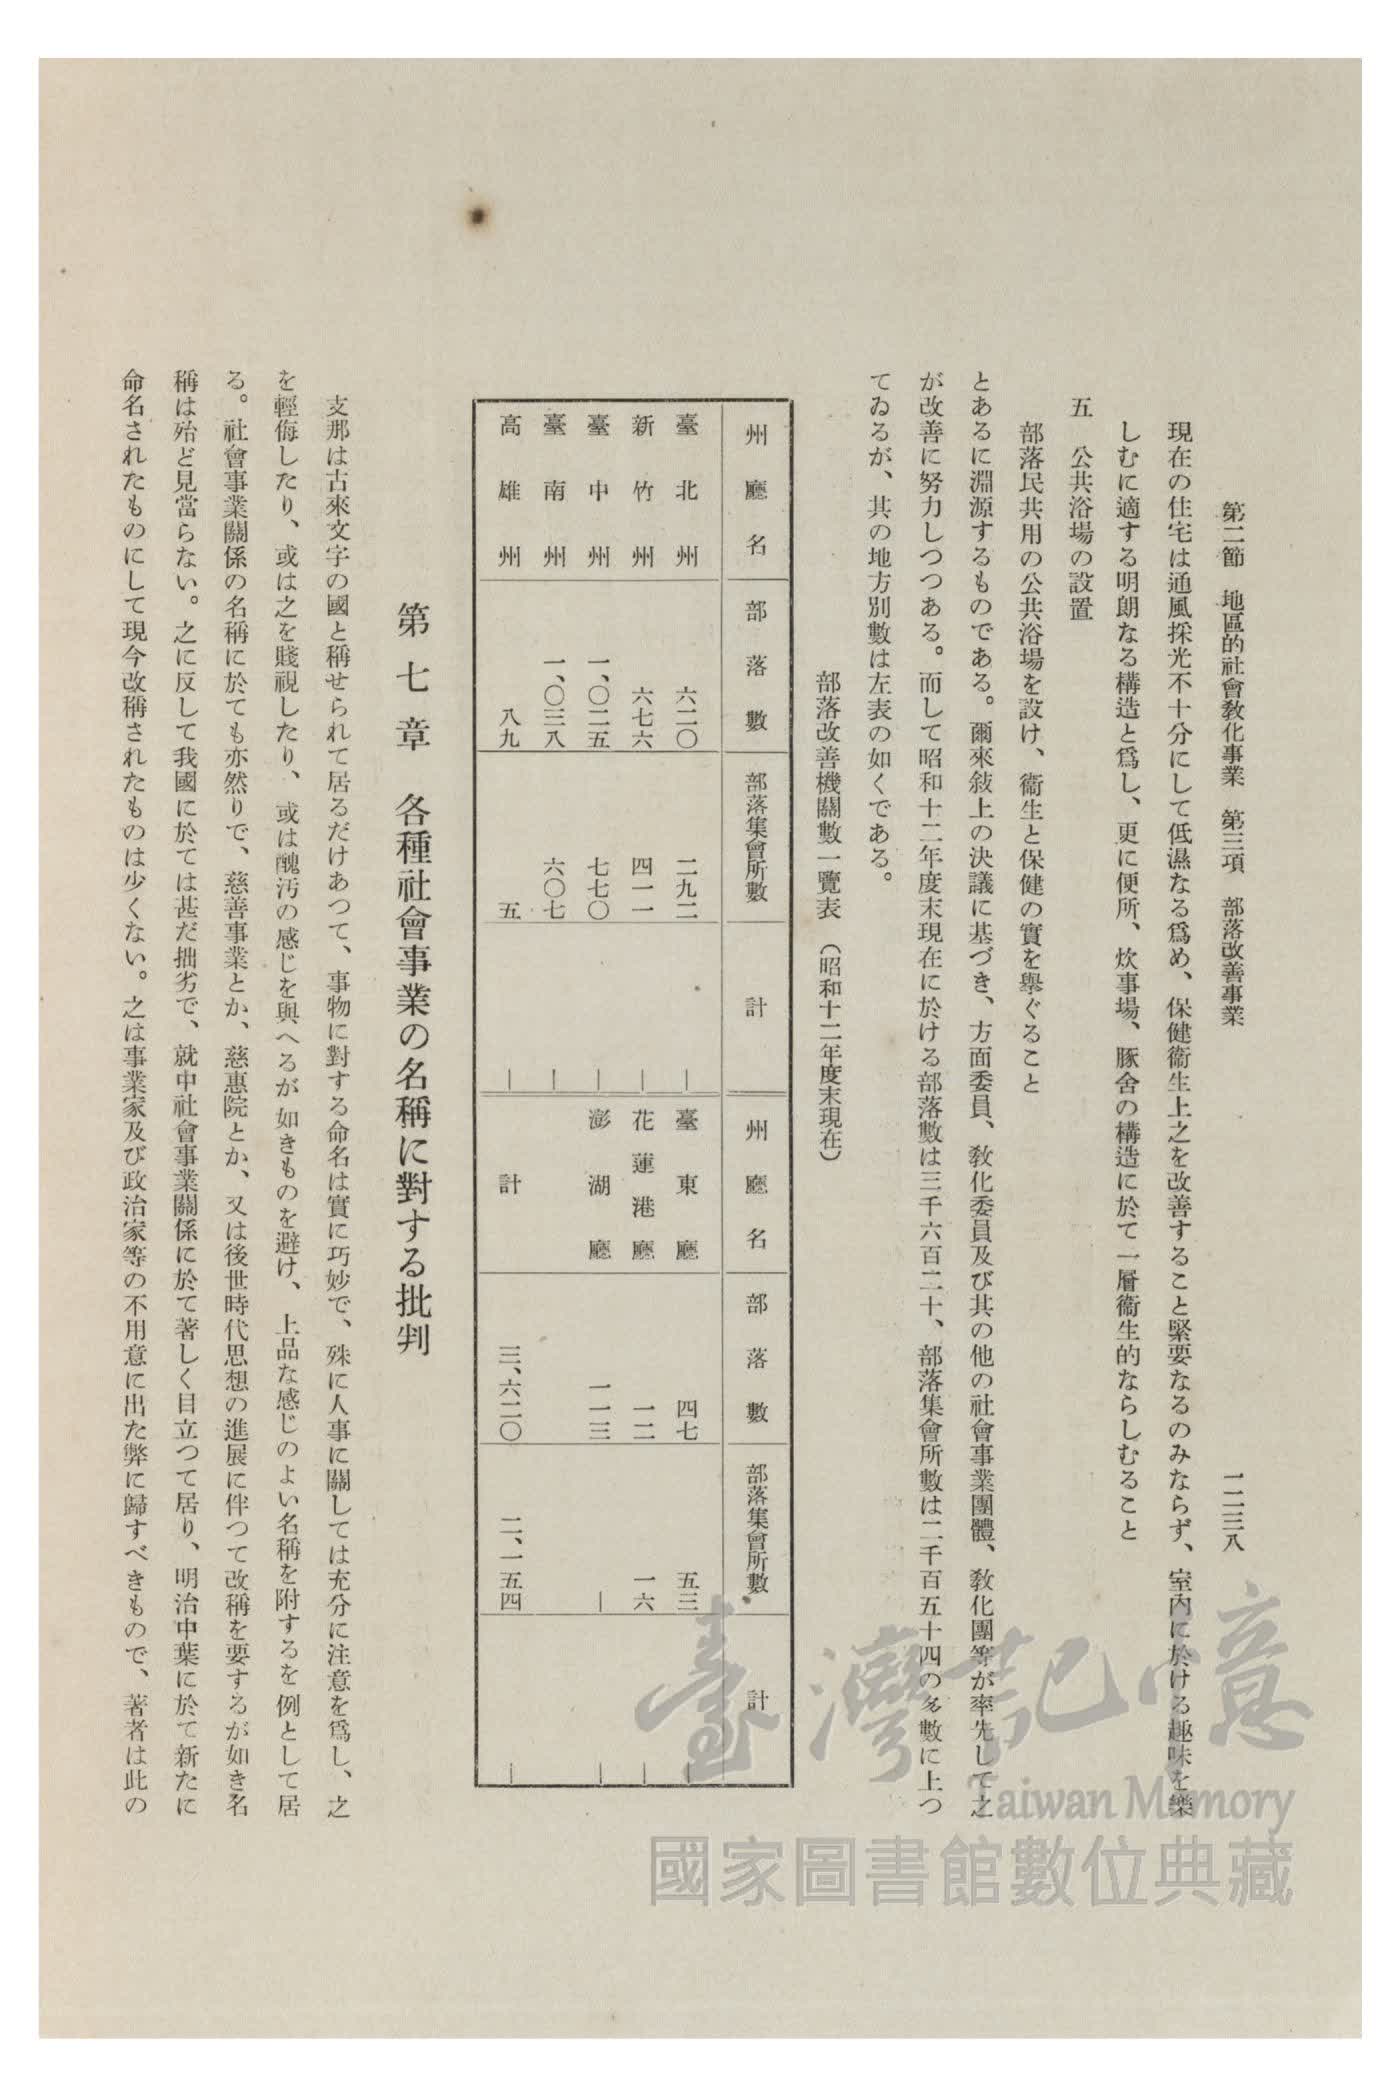 第二節　地區的社會敎化事業　第三項　部落改善事業　　一二三八
現在の住宅は通風採光不十分にして低濕なる爲め、保健衞生上之を改善すること緊要なるのみならず、室內に於ける趣味を樂
しむに適する明朗なる構造と爲し、更に便所、炊事場、豚舍の構造に於て一層衞生的ならしむること
五　公共浴場の設置
部落民共用の公共浴場を設け、衞生と保健の實を擧ぐること
とあるに淵源するものである。爾來敍上の決議に基づき、方面委員、敎化委員及び其の他の社會事業團體、敎化團等が率先して之
が改善に努力しつつある。而して昭和十二年度末現在に於ける部落數は三千六百二十、部落集會所數は二千百五十四の多數に上つ
てゐるが、其の地方別數は左表の如くである。
部落改善機關數一覽表（昭和十二年度末現在）
州廳名　部落數　部落集會所數　計　州廳名　部落數　部落集會所數　計
臺北州　六二〇　二九二　｜　臺東廳　四七　五三　｜
新竹州　六七六　四一一　｜　花蓮港廳　一二　一六　｜
臺中州　一、〇二五　七七〇　｜　澎湖廳　一一三　｜　｜
臺南州　一、〇三八　六〇七　｜
高雄州　八九　五　｜　計　三、六二〇　二、一五四　｜
第七章　各種社會事業の名稱に對する批判
支那は古來文字の國と稱せられて居るだけあつて、事物に對する命名は實に巧妙で、殊に人事に關しては充分に注意を爲し、之
を輕侮したり、或は之を賤視したり、或は醜汚の感じを與へるが如きものを避け、上品な感じのよい名稱を附するを例として居
る。社會事業關係の名稱に於ても亦然りで、慈善事業とか、慈惠院とか、又は後世時代思想の進展に伴つて改稱を要するが如き名
稱は殆ど見當らない。之に反して我國に於ては甚だ拙劣で、就中社會事業關係に於て著しく目立つて居り、明治中葉に於て新たに
命名されたものにして現今改稱されたものは少くない。之は事業家及び政治家等の不用意に出た弊に歸すべきもので、著者は此の
臺灣記憶
Taiwan Memory
國家圖書館數位典藏